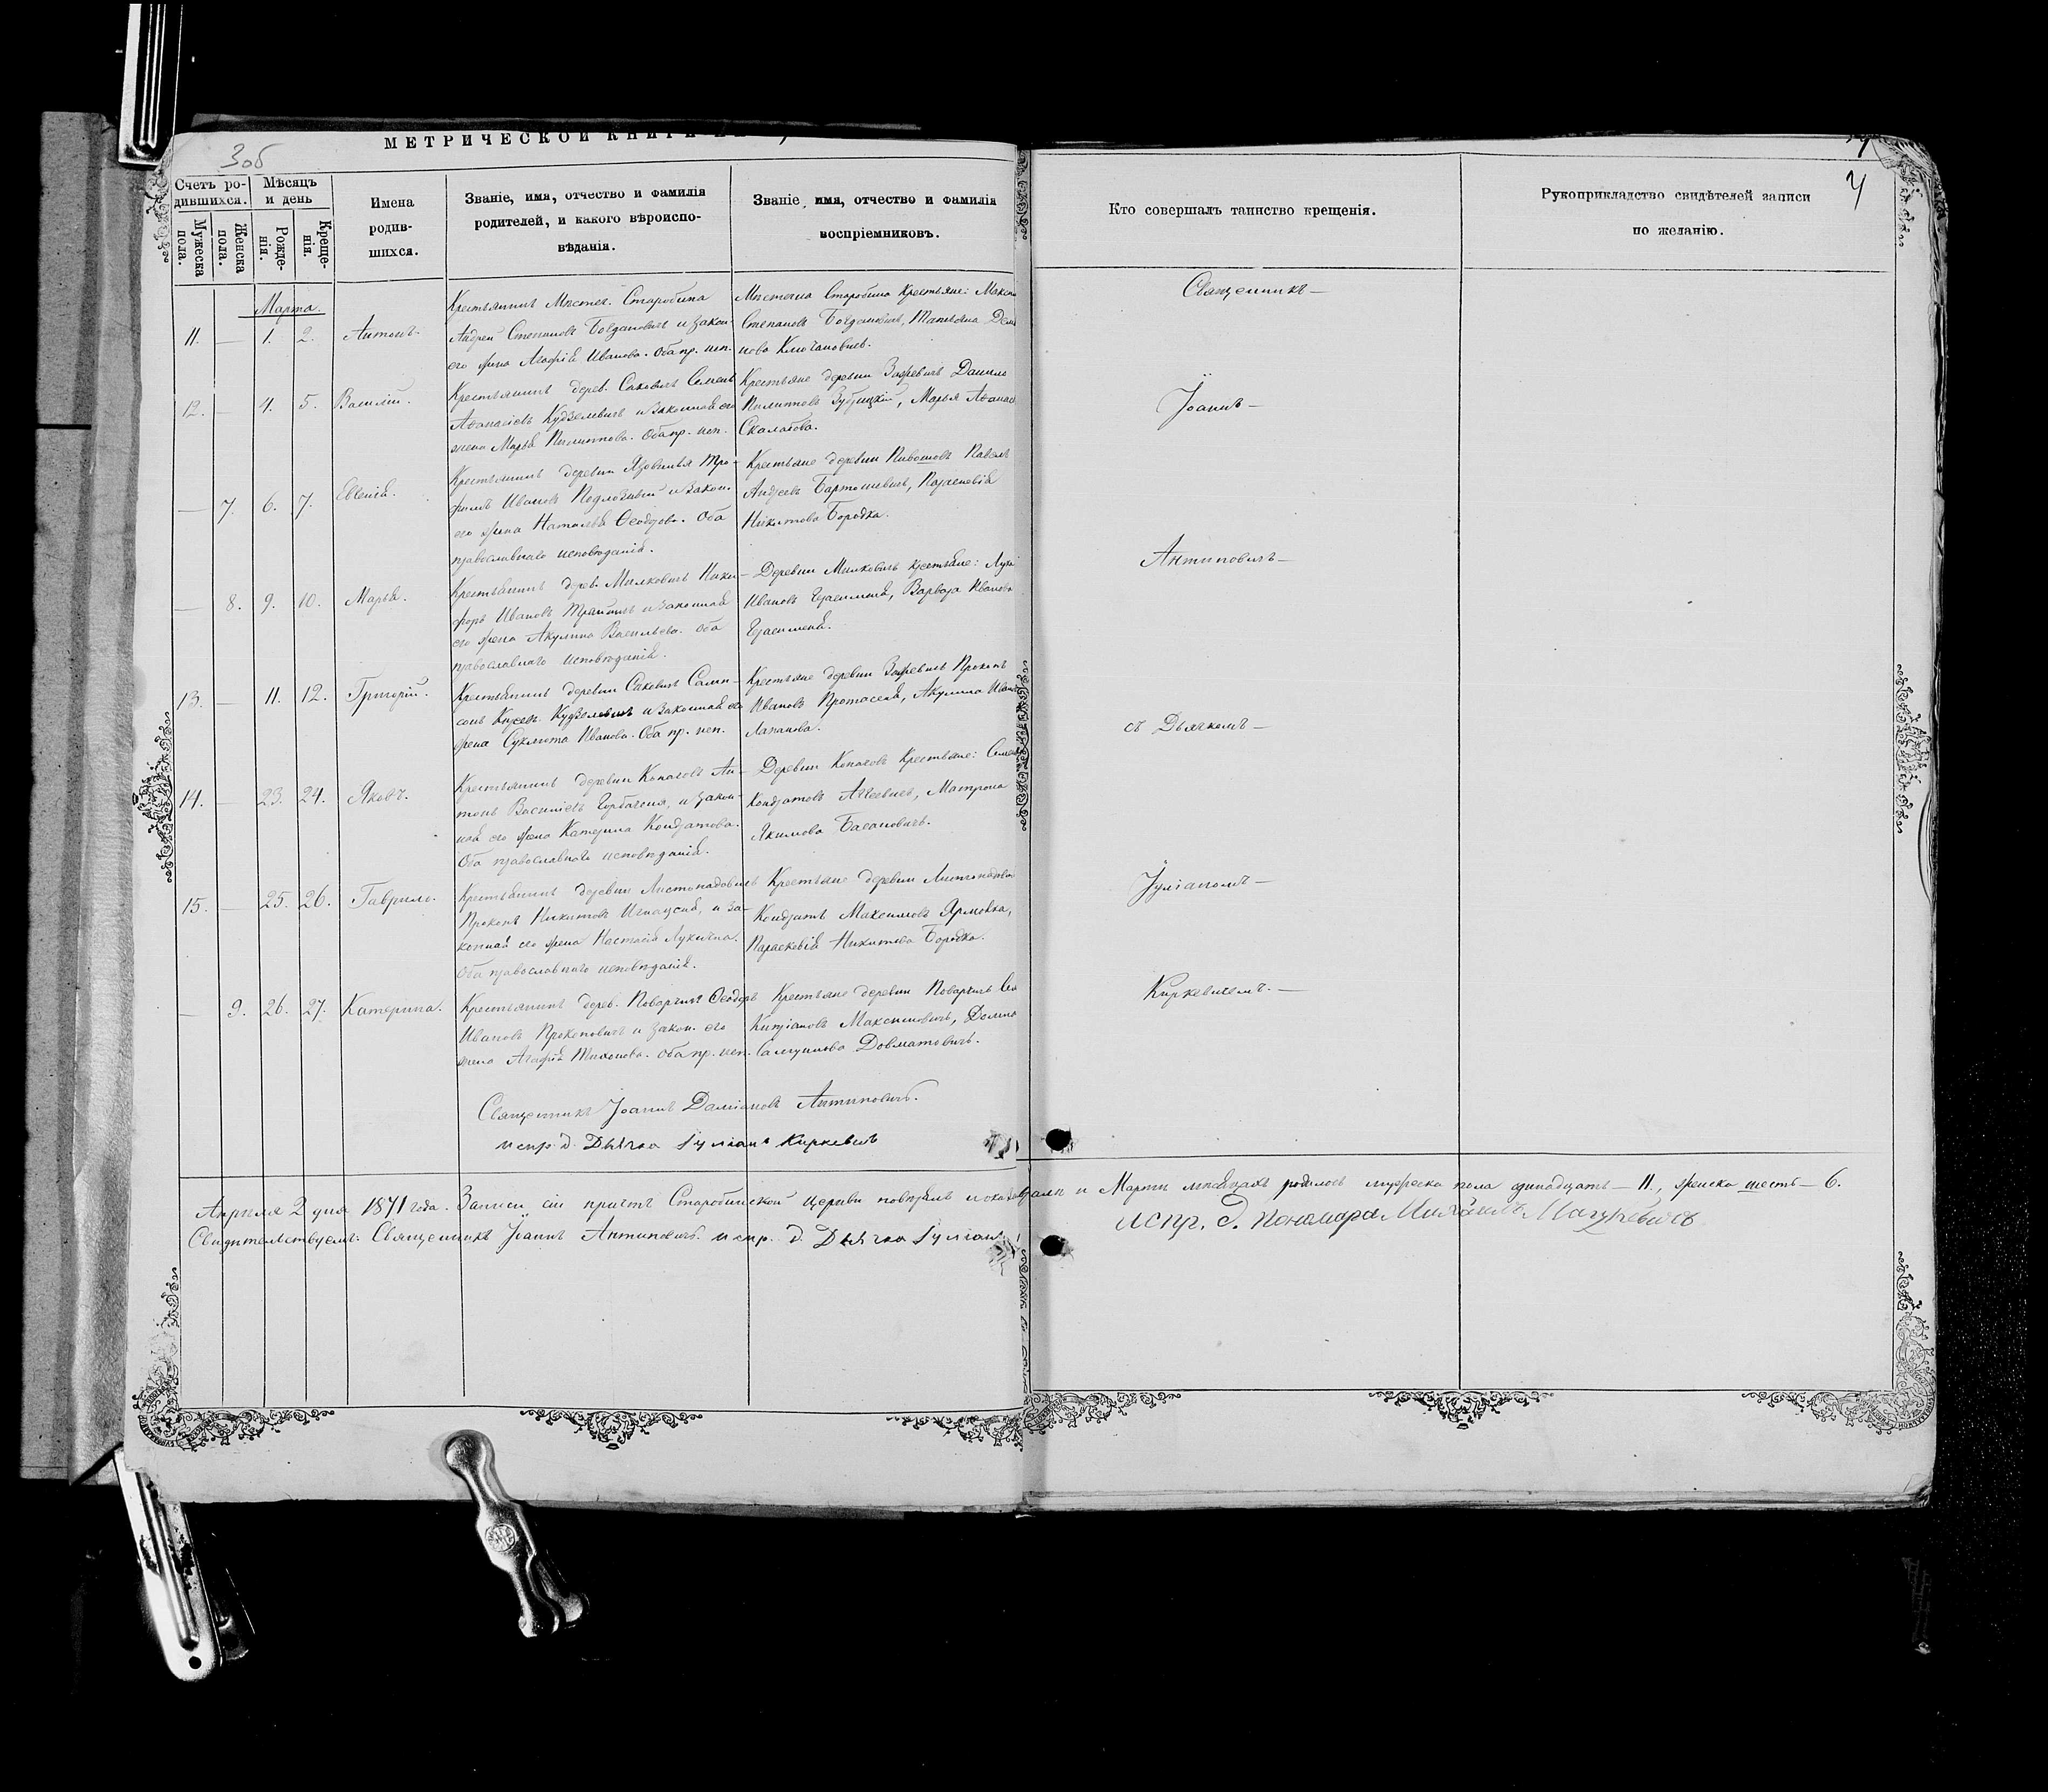 МЕТРИЧЕСКОЙ КНИГИ
3 об
4
Счетъ ро-
дившихся.
Мужеска пола.
Женска пола.
Мѣсяцъ
и день
Рожде-
нія.
Креще-
нія.
Имена
родив-
шихся.
Званіе, имя, отчество и фамилія
родителей, и какого вѣроиспо-
вѣданія.
Званіе, имя, отчество и фамилія
воспріемниковъ.
Кто совершалъ таинство крещенія.
Рукоприкладство свидѣтелей записи
по желанію.
Марта.
11. — 1. 2. Антонъ.
Крестьянинъ Мѣстеч. Старобина
Андрей Степановъ Богдановичъ и закон.
его жена Агафія Иванова. Оба пр. исп.
Мѣстечка Старобина Крестьяне:
Степановъ Богдановичъ, Татьяна
нова Климовичъ.
12. — 4. 5. Василій.
Крестьянинъ дерев. Саковичъ Семенъ
Афанасіевъ Кудзелевичъ и законная его
жена Марья Пилиппова. Оба пр. исп.
Крестьяне деревни Зажевичъ Данило
Пилипповъ Зубрицкій, Марья
Скалабова.
— 7. 6. 7. Евгенія.
Крестьянинъ деревни Языля Тро-
фимъ Ивановъ и закон.
его жена Наталья Ѳеодорова. Оба
православнаго исповѣданія.
Крестьяне деревни Павелъ
Андреевъ Бартошевичъ, Параскевія
Никитова Бородка.
— 8. 9. 10. Марья.
Крестьянинъ дерев. Милковичъ Ники-
форъ Ивановъ и законная
его жена Акулина Васильева. Оба
православнаго исповѣданія.
Деревни Милковичъ крестьяне:
Ивановъ Герасименя, Варвара Иванова
Герасименя.
13. — 11. 12. Григорій.
Крестьянинъ деревни Саковичъ Самп-
сонъ Кудзелевичъ и законная его
жена Иванова. Оба пр. исп.
Крестьяне деревни Зажевичъ Прокопъ
Ивановъ Протасеня, Акулина
Лапанова.
14. — 23. 24. Яковъ.
Крестьянинъ деревни Копачовъ Ан-
тонъ Василіевъ Горбаченя, и закон-
ная его жена Катерина Кондратова.
Оба православнаго исповѣданія.
Деревни Копачовъ Крестьяне:
Кондратовъ Матрона
Якимова Басановичъ.
15. — 25. 26. Гаврило.
Крестьянинъ деревни Листопадовичъ
Прокопъ Никитовъ и за-
конная его жена Настасія Лукична.
Оба православнаго исповѣданія.
Крестьяне деревни
Кондратъ Максимовъ Ярмовка,
Параскевія Никитова Бородка.
— 9. 26. 27. Катерина.
Крестьянинъ дерев. Поварчичъ Ѳеодоръ
Ивановъ Прокоповичъ и закон. его
жена Агафія Тихонова. Оба пр. исп.
Крестьяне деревни Поварчичъ
Кипріановъ Максимовичъ,
Самуилова Довматовичъ.
Священникъ —
Іоаннъ —
Антиповичъ —
съ Дьячкомъ —
Іуліаномъ —
Киркевичемъ. —
Священникъ Іоаннъ Даміановъ Антиповичъ.
испр. д. Дьячка Іуліанъ Киркевичъ
Апрѣля 2 дня 1871 года. Записи сіи причтъ Старобинской церкви повѣрялъ и Марти мѣсяцахъ родилось мужеска пола одинадцать — 11., женска шесть — 6.
Свидѣтельствуемъ: Священникъ Іоаннъ Антиповичъ. испр. д. Дьячка Іуліан
испр. д. пономаря Михаилъ Мацкевичъ